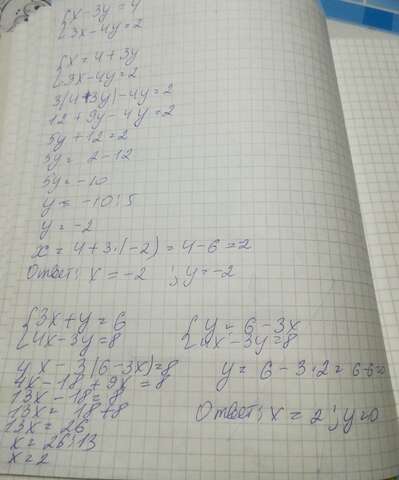 {x-3y=4
3x-4y=2
{x=4+3y
3x-4y=2
3(4+3y)-4y=2
12+9y-4y=2
5y+12=2
5y= 2-12
5y=-10
y= -10:5
y=-2
x=4+3·(-2)=4-6=2
Ответ: x=-2 ; y=-2
{3x+y=6
4x-3y=8
4x-3(6-3x)=8
4x-18+9x=8
13x-18=8
13x= 18+8
13x=26
x=26:13
x=2
{y=6-3x
4x-3y=8
y= 6-3·2=6-6=0
Ответ: x=2; y=0